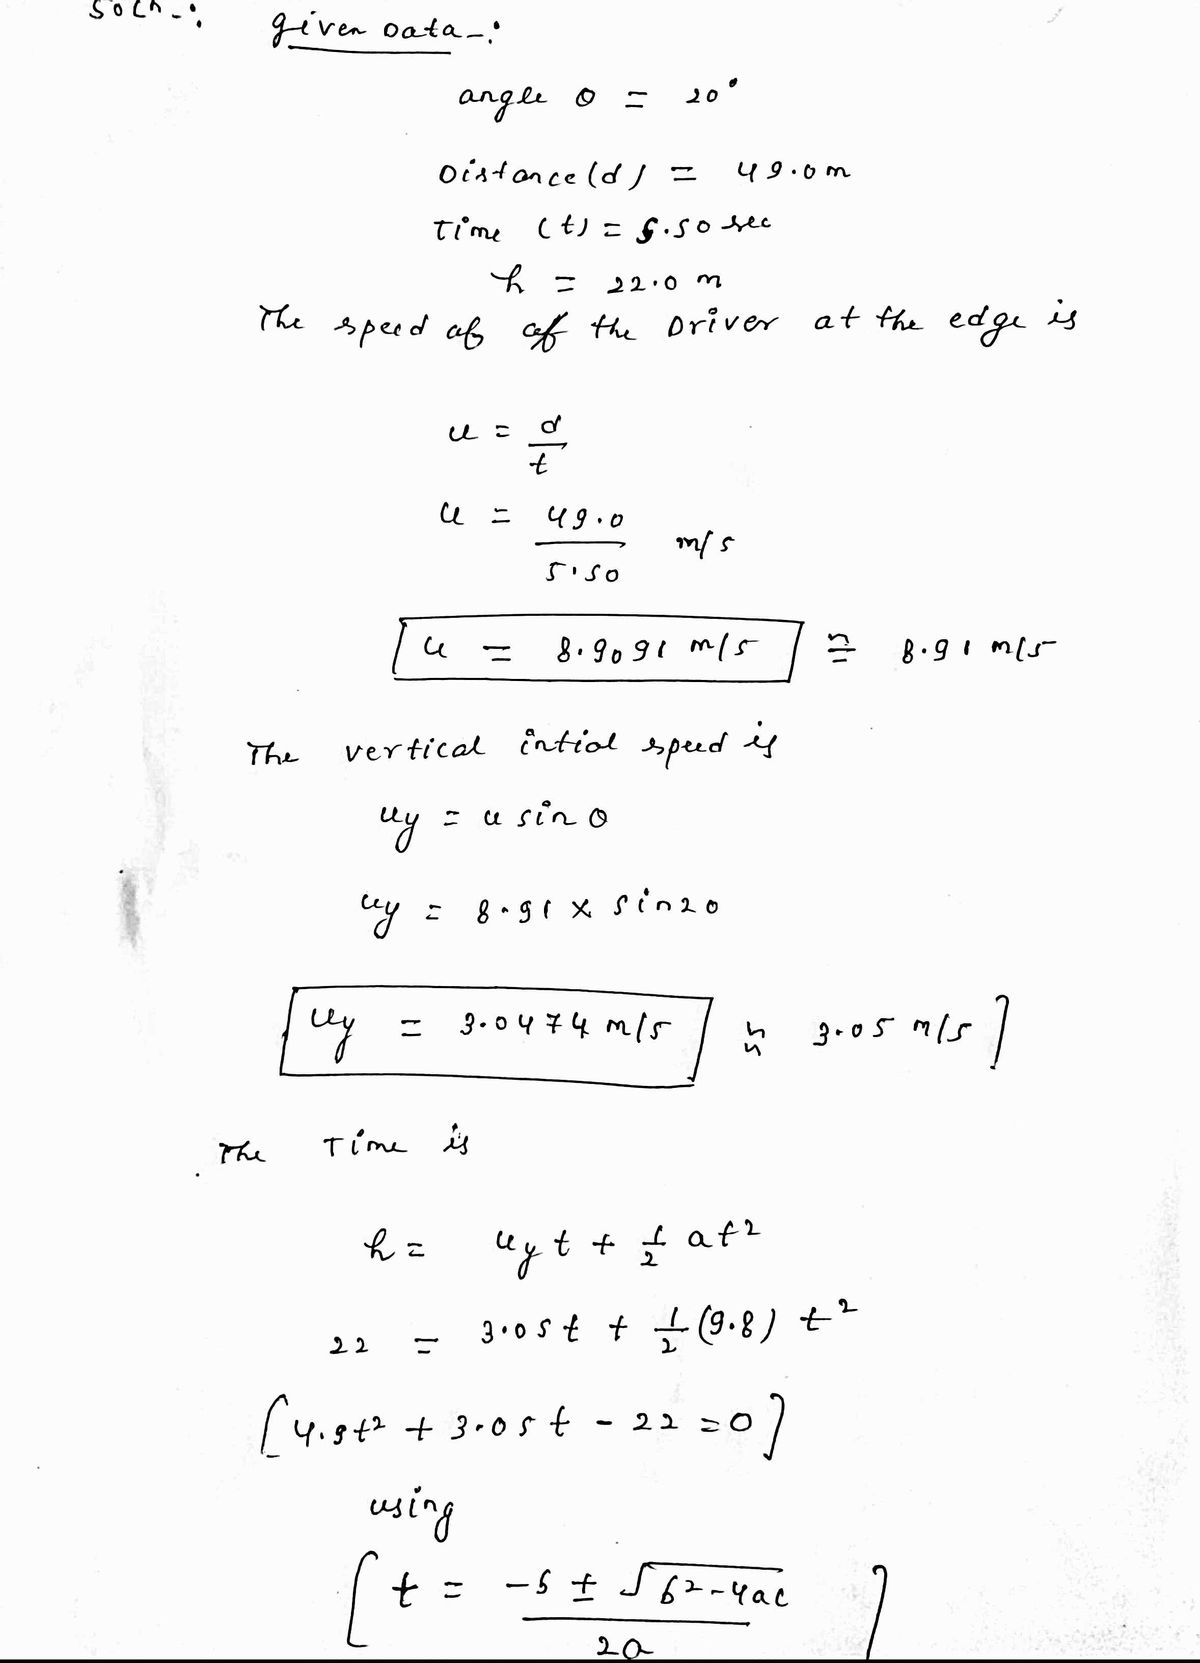 Soln-:
given Data-:
angle θ = 20°
Distance (d) = 49.0 m
Time (t) = 5.50 sec
h = 22.0 m
The speed of of the Driver at the edge is
u = d/t
u = 49.0/5.50 m/s
u = 8.9091 m/s ≅ 8.91 m/s
The vertical intial speed is
uy = u sin θ
uy = 8.91 × sin20
uy = 3.0474 m/s ≈ 3.05 m/s]
The Time is
h = uy t + 1/2 at²
22 = 3.05t + 1/2 (9.8) t²
[4.9t² + 3.05t - 22 = 0]
using
[t = -b ± √b²-4ac / 2a]